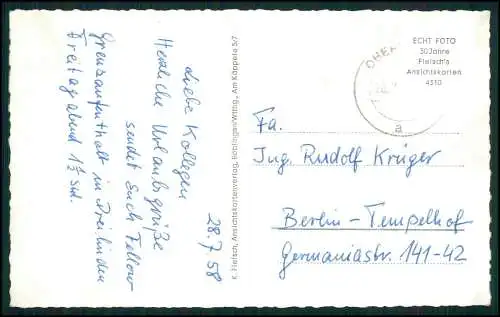 28.7.58
Liebe Kollegen
Herzliche Urlaubsgrüße
sendet Euch Fellow
Grenzaufenthalt in Dreilinden
Freitag abend 1½ Std.
K. Fleisch, Ansichtskartenverlag, Böblingen/Württg., Am Käppele 5/7
ECHT FOTO
30 Jahre
Fleisch's
Ansichtskarten
4510
OBER
a
Fa.
Ing. Rudolf Krüger
Berlin-Tempelhof
Germaniastr. 141-42